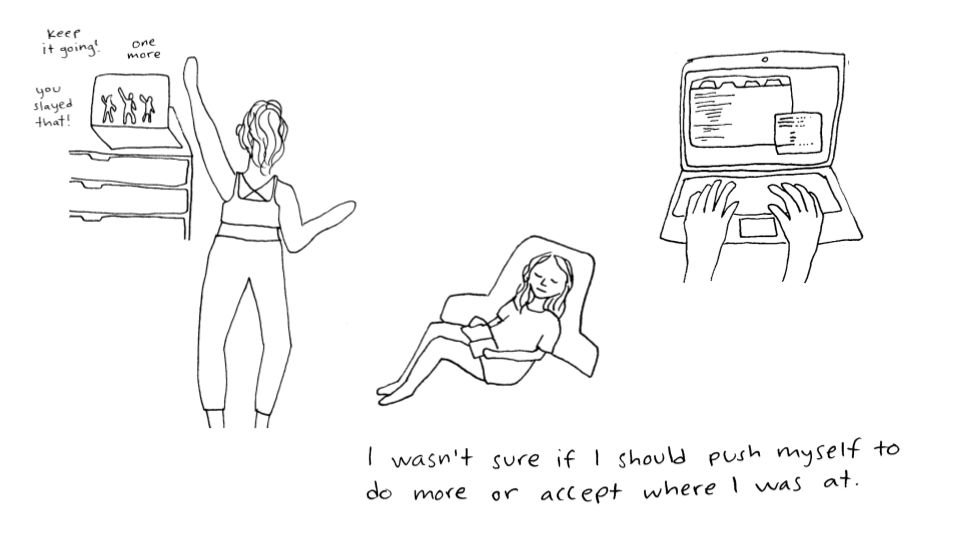 keep
it going!
one
more
you
slayed
that!
I wasn't sure if I should push myself to
do more or accept where I was at.